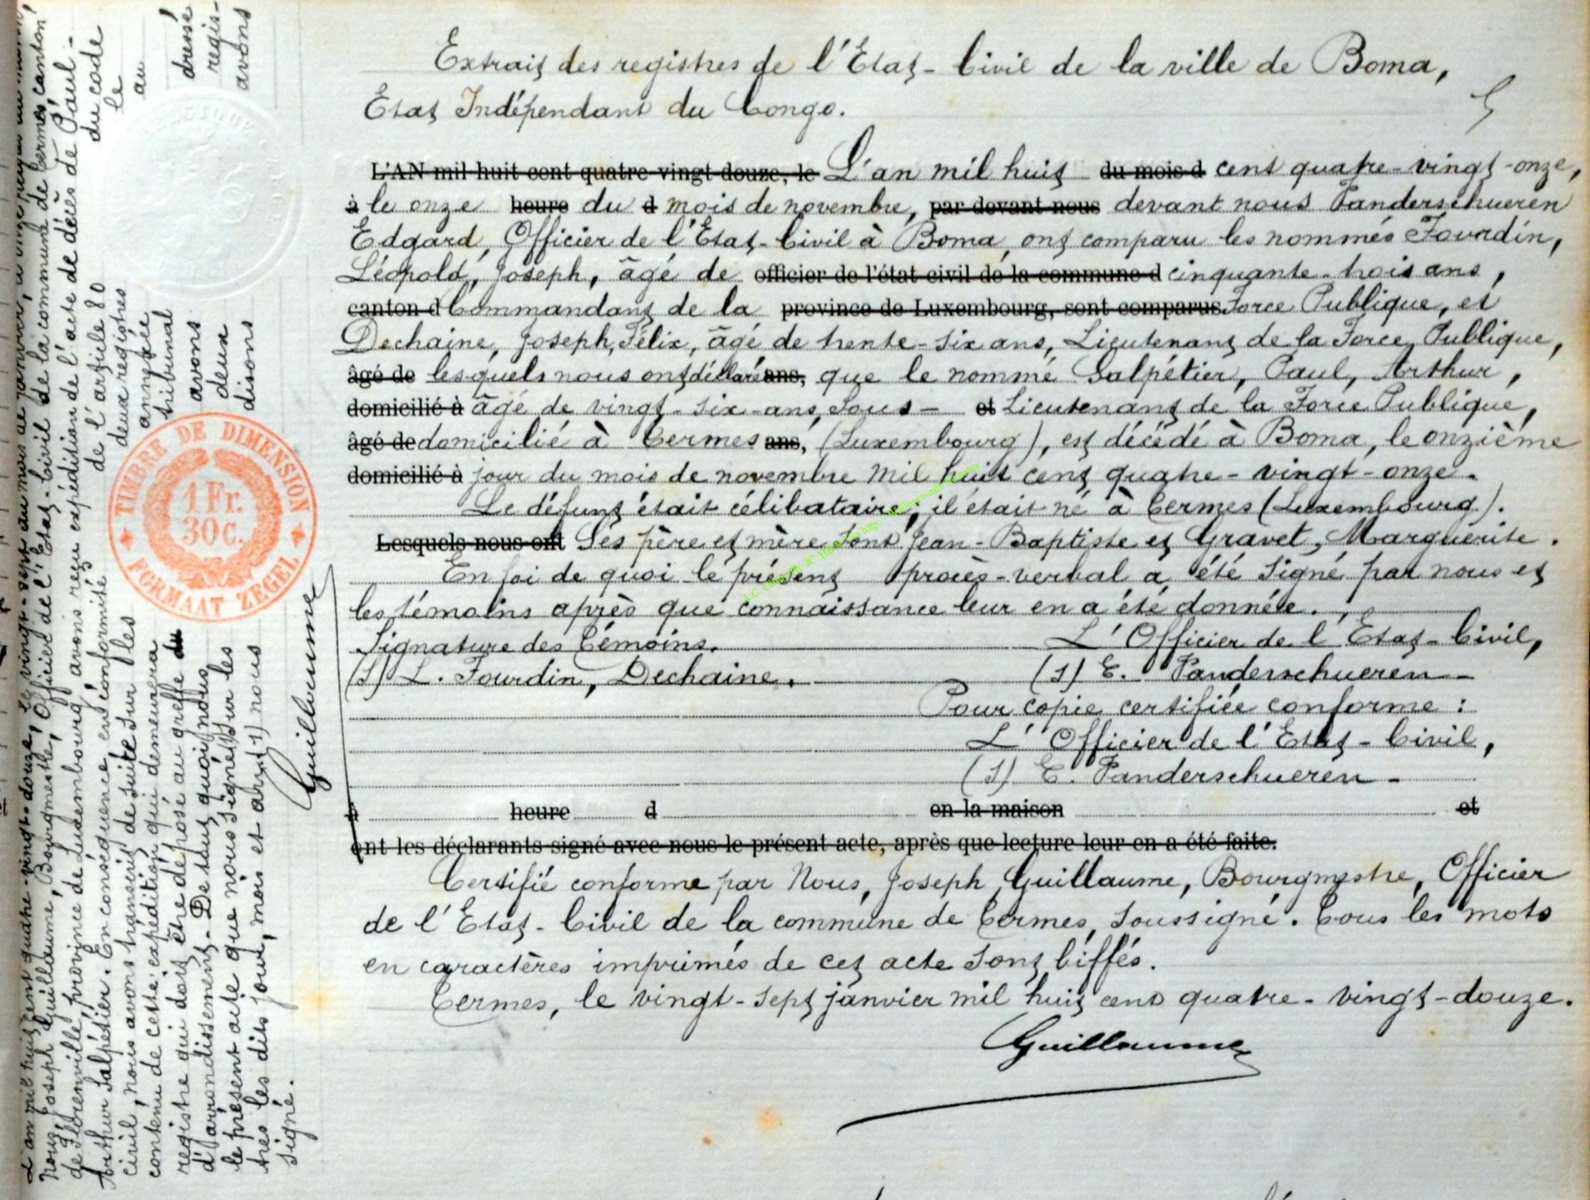 Extrait des registres de l'Etat-Civil de la ville de Boma,
Etat Indépendant du Congo.
L'AN mil huit cent quatre-vingt douze, le L'an mil huit du mois d cent quatre-vingt-onze,
à le onze heure du d mois de novembre, par devant nous devant nous Vanderschueren
Edgard, Officier de l'Etat-Civil à Boma, ont comparu les nommés Fourdin,
Léopold, Joseph, âgé de officier de l'état civil de la commune d cinquante-trois ans,
canton d Commandant de la province de Luxembourg, sont comparus Force Publique, et
Dechaine, Joseph, Félix, âgé de trente-six ans, Lieutenant de la Force Publique,
âgé de lesquels nous ont déclaré ans, que le nommé Salpétier, Paul, Arthur,
domicilié à âgé de vingt-six-ans, Sous- et Lieutenant de la Force Publique,
âgé de domicilié à Termes ans, (Luxembourg), est décédé à Boma, le onzième
domicilié à jour du mois de novembre mil huit cent quatre-vingt-onze.
Le défunt était célibataire; il était né à Termes (Luxembourg).
Lesquels nous ont Ses père et mère sont Jean-Baptiste et Gravet, Marguerite.
En foi de quoi le présent procès-verbal a été signé par nous et
les témoins après que connaissance leur en a été donnée.
Signature des Témoins. L'Officier de l'Etat-Civil,
(s) L. Fourdin, Dechaine. (s) E. Vanderschueren
Pour copie certifiée conforme :
L'Officier de l'Etat-Civil,
(s) E. Vanderschueren
à heure d en la maison et
ont les déclarants signé avec nous le présent acte, après que lecture leur en a été faite.
Certifié conforme par Nous, Joseph Guillaume, Bourgmestre, Officier
de l'Etat-Civil de la commune de Termes, soussigné. Tous les mots
en caractères imprimés de cet acte sont biffés.
Termes, le vingt-sept janvier mil huit cent quatre-vingt-douze.
Guillaume
L'an mil huit cent quatre-vingt-douze, le vingt-sept du mois de janvier,
Nous, Joseph Guillaume, Bourgmestre, Officier de l'Etat-Civil de la commune de Termes, canton
de Florenville, province de Luxembourg, avons reçu expédition de l'acte de décès de Paul-
Arthur Salpétier. En conséquence, en conformité de l'article 80 du code
civil, nous avons transcrit de suite sur les deux registres le
contenu de cette expédition qui demeurera annexée au
registre qui doit être déposé au greffe du tribunal
d'arrondissement. De tout quoi nous avons dressé
le présent acte que nous signé sur les deux regis-
tres les dits jour, mois et an nous disons avons
signé.
Guillaume
TIMBRE DE DIMENSION
1 Fr.
30 c.
FORMAAT ZEGEL